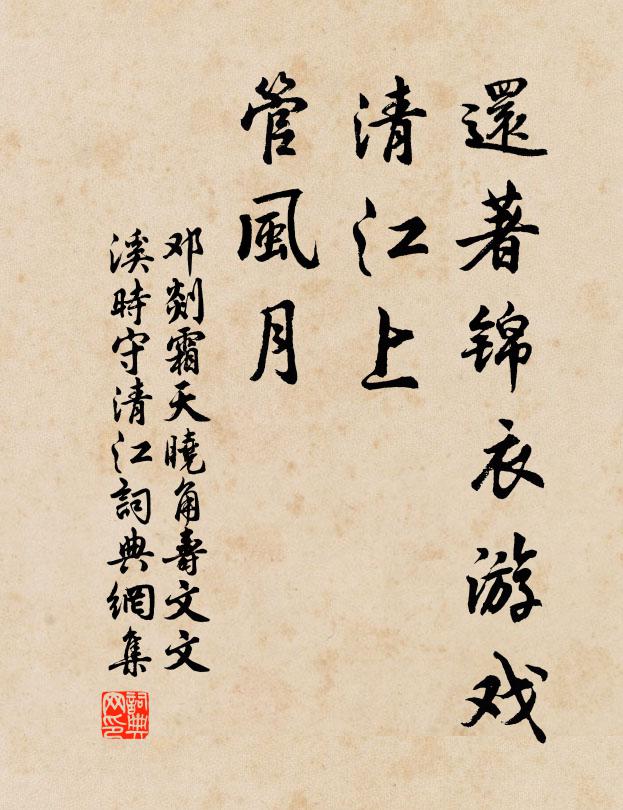 還著锦衣游戏
清江上
管風月
邓剡霜天曉角壽文文
溪時守清江詞典網集
詞典
网印